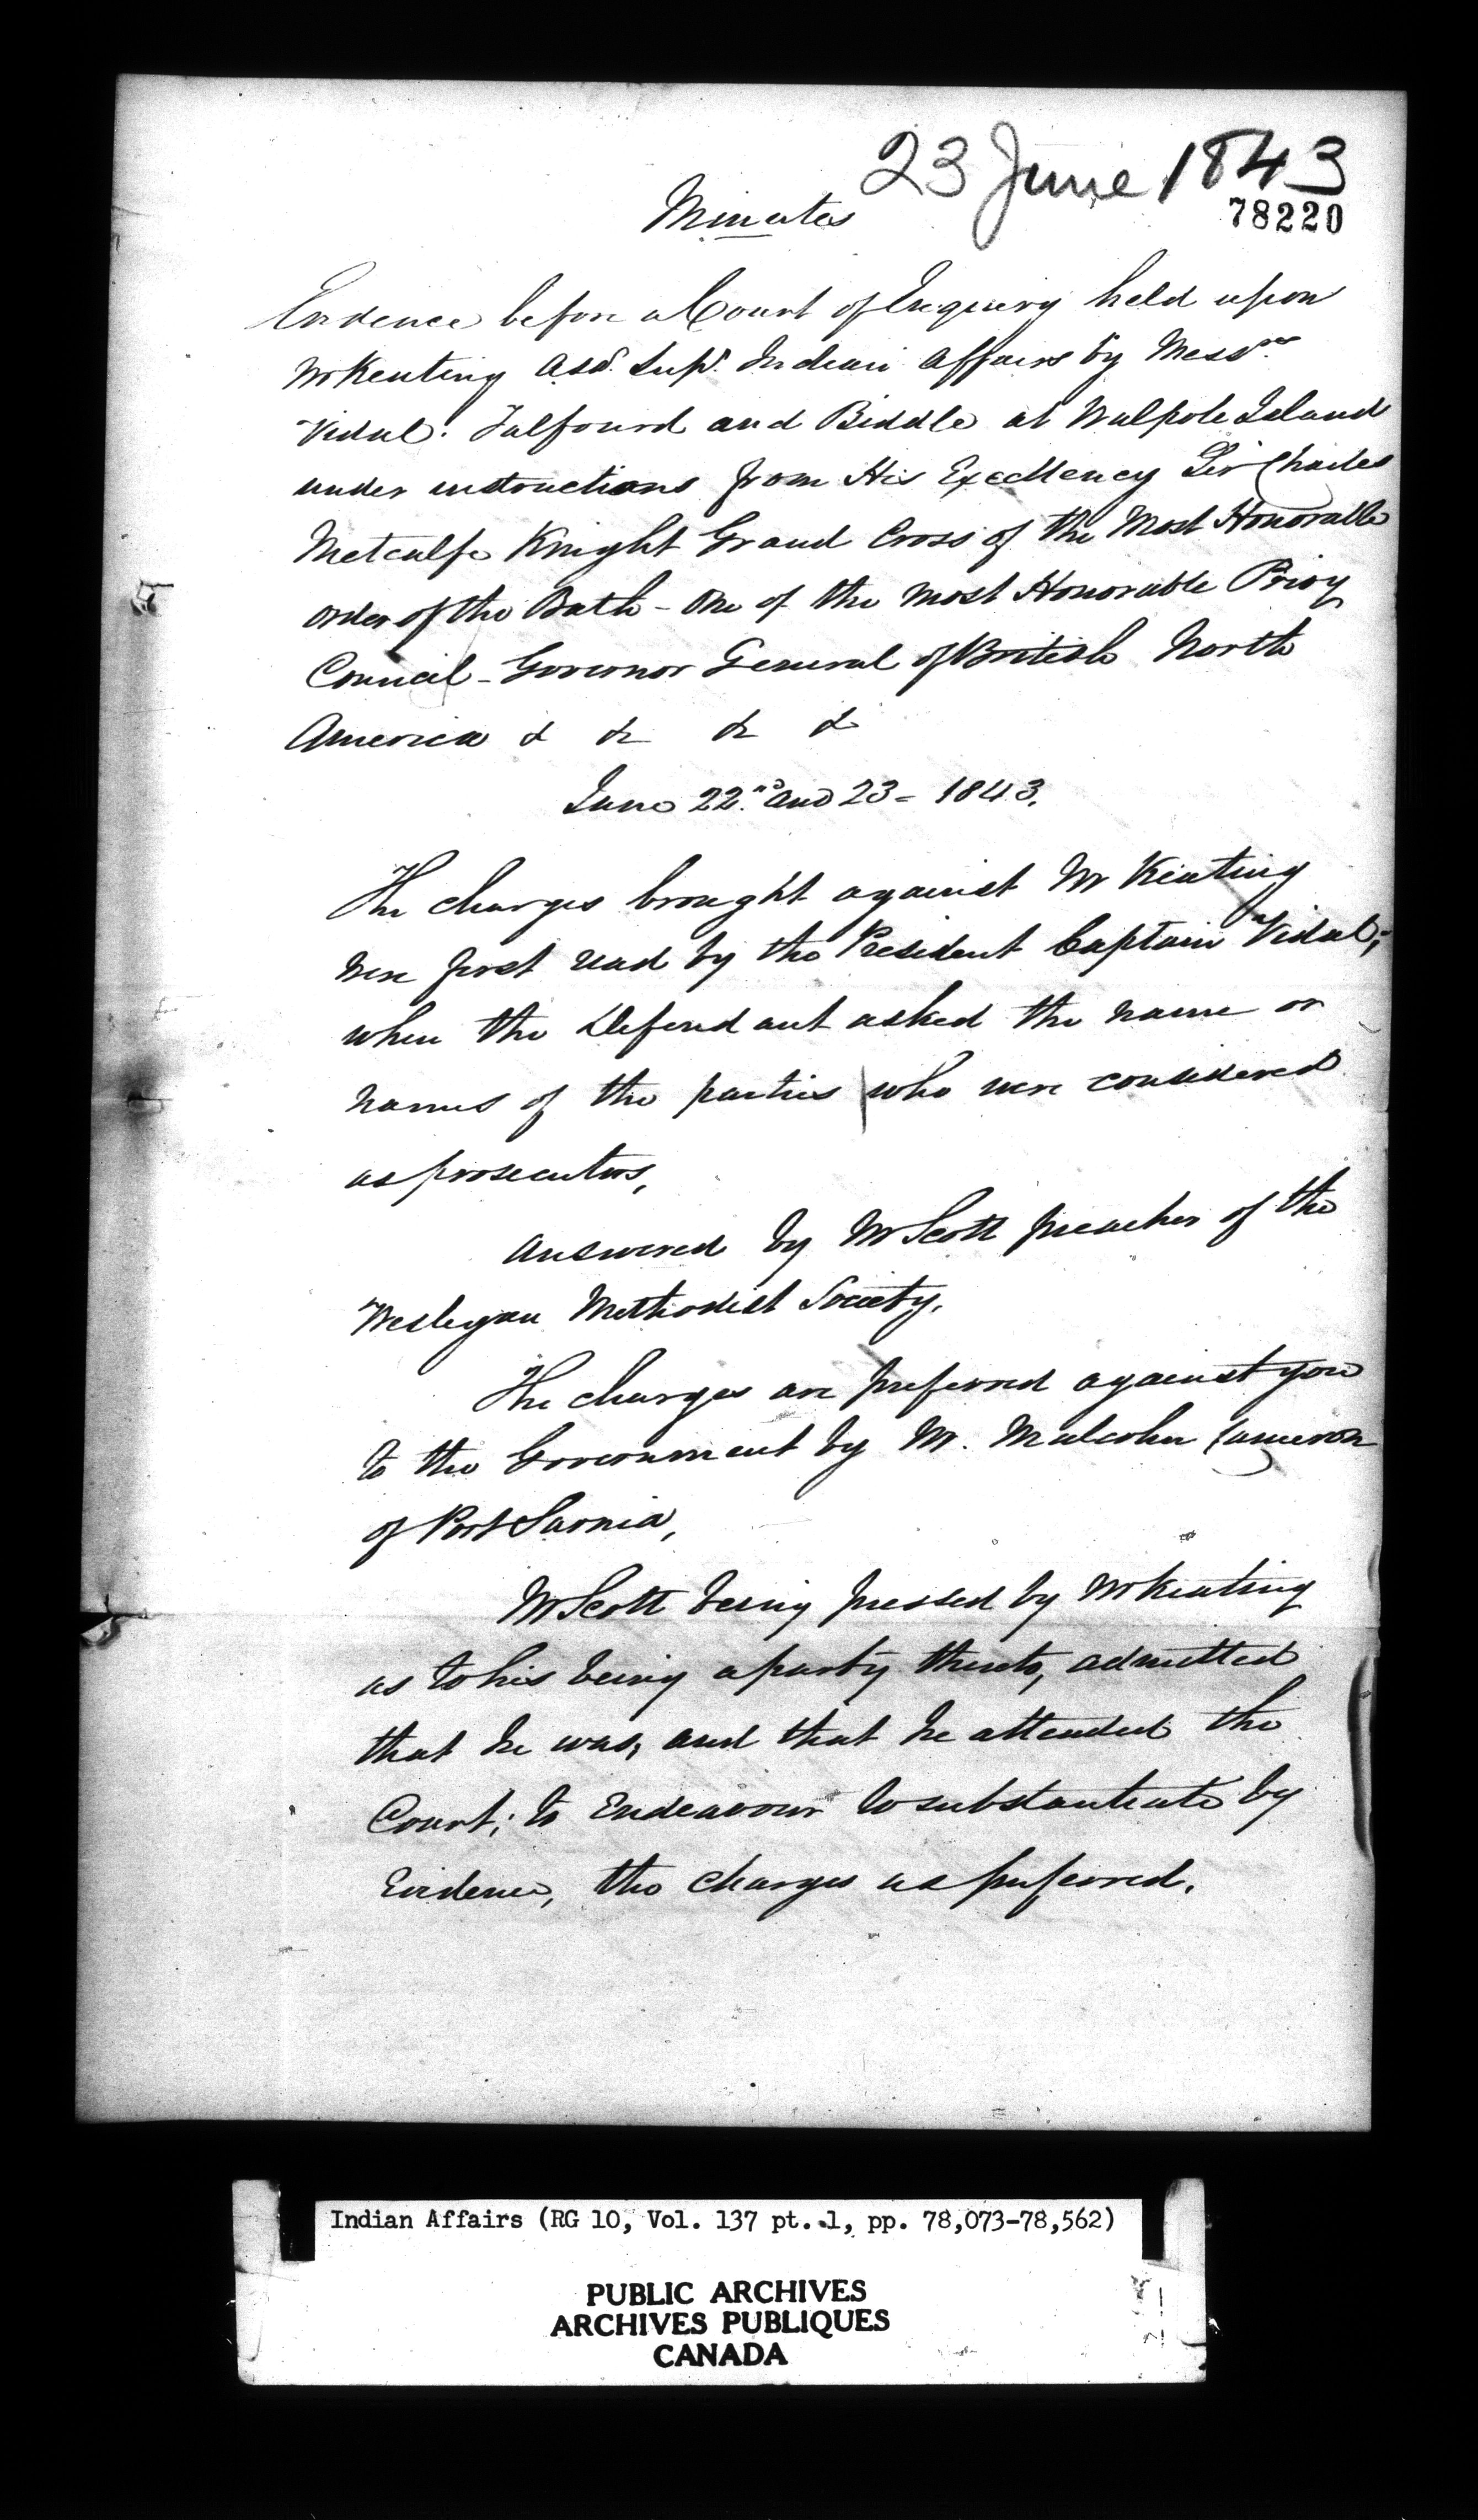 23 June 1843
78220
Minutes
Evidence before a Court of Enquiry held upon
Mr Keating Asst. Supt. Indian Affairs by Messrs
Vidal. Talfourd and Biddle at Walpole Island
under instructions from His Excellency Sir Charles
Metcalfe Knight Grand Cross of the Most Honorable
order of the Bath - One of the most Honorable Privy
Council - Governor General of British North
America & & & &
June 22nd and 23 - 1843.
The charges brought against Mr Keating
were first read by the President Captain Vidal;
when the Defendant asked the name or
names of the parties who were considered
as prosecutors,
answered by Mr Scott preacher of the
Wesleyan Methodist Society.
The charges are preferred against you
to the Government by Mr. Malcolm Cameron
of Port Sarnia,
Mr Scott being pressed by Mr Keating
as to his being a party thereto, admitted
that he was, and that he attended the
Court; to Endeavour to substantiate by
Evidence, the charges as preferred.
Indian Affairs (RG 10, Vol. 137 pt. 1, pp. 78,073-78,562)
PUBLIC ARCHIVES
ARCHIVES PUBLIQUES
CANADA